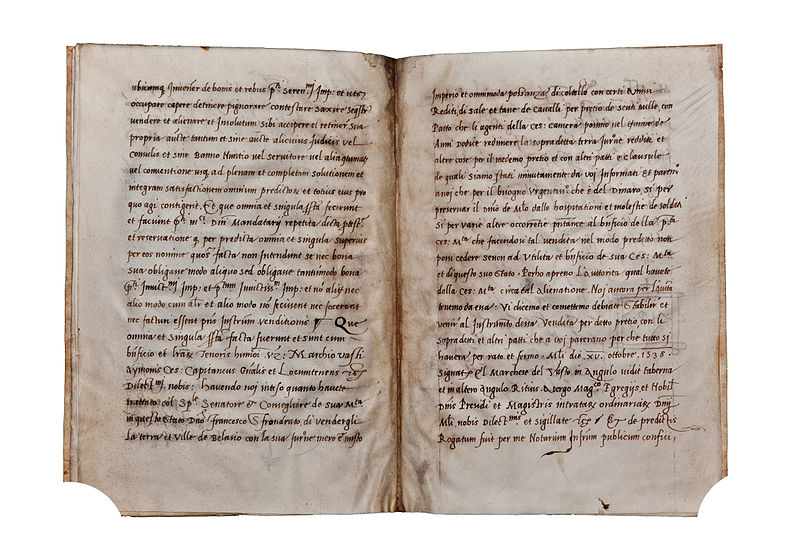 ubicunq Inveniet de bonis et rebus p.ti Seren.mi Imp: et
occupare capere detinere pignorare contestare Saxire
vendere et alienare et Insolutum sibi accipere et retinere sua
propria aucte tantum et sine aucte alicuius Judicis vel
Consulis et sine Banno Nuntio vel Servitore vel aliqua
vel conventione usq ad plenam et completam solutionem et
integram satisfactionem omnium predictor et totius eius pro
quo agi contigerit. Et que omnia et singula fecerunt
et faciunt p.ti m.ci Dni Mandatarij repetita dicta
et reservatione q. per predicta omnia et singula superius
per eos nomine quo facta non intendunt se nec bona
sua obligare modo aliquo sed obligare tantumodo bona
p.ti Invict.mi Imp: et Invictiss.mi Imp: et nō alij nec
alio modo cum alr et alio modo nō fecissent nec fecerent
nec facturi essent pñs Instrum venditionis Que
omnia et singula facta fuerunt et sunt cum
bñficio et lrar Tenoris huiusmoi vz: Marchio vasti
Aymonis Ces: Capitaneus Gñalis et Locumtenens
Dilet.mi nobis: havendo noi inteso quanto havete
trattato col Sp.le Senatore & Consegliere de sua M.ta
in questo Stato Dño Francesco Sfrondrato, di vendergli
la terra et Ville de Belasio con la sua mero e misto
Imperio et ommimoda possanza di coltello con certi
Rediti di Sale et tase de Cavalli per pretio de Scuti mille, con
Patto che li agenti della Ces: camera possino nel termine de
Anni Dodice redimere la sopradetta terra rediti et
altre cose per il medemo pretio et con altri patti e clausule
de quali siamo stati minutamente da voi Informati et
a noi che per il bisogno Urgentiss.o che è del Dinaro, si per
preservar il Dñio de M.lo dalle hospitationi et molestie de soldati
Si per varie altre occorrētie al bñficio della p.ta
ces: M.ta che facendosi tal vendita nel modo predetto non
poss cedere senon ad Utilita et bñficio de sua Ces: M.ta
et di questo suo Stato. Perho apreso La autorita qual havete
dalla Ces: M.ta circa tal alienatione. Noi ancora per
tenemo da ena: Vi dicemo et comettemo debiate Stabilir et
venir al Instrumto dena Vendita per detto pretio con li
Sopraditi et altri patti che a voi parerano per che tutto si
havera per rato et fermo. Mlī die. XV. ottobre. 1538.
Signat Il Marchese del Vasto in Angulo vidit taberna
et in altero Angulo Ritius. A tergo Mag.cis Egregijs, et Nobil
Dñis Presidi et Magistris intratar ordinariar Dñij
Mlī, nobis Dilet.mis et Sigillate de predictis
Rogatum fuit per me Notarium Instrum publicum confici,